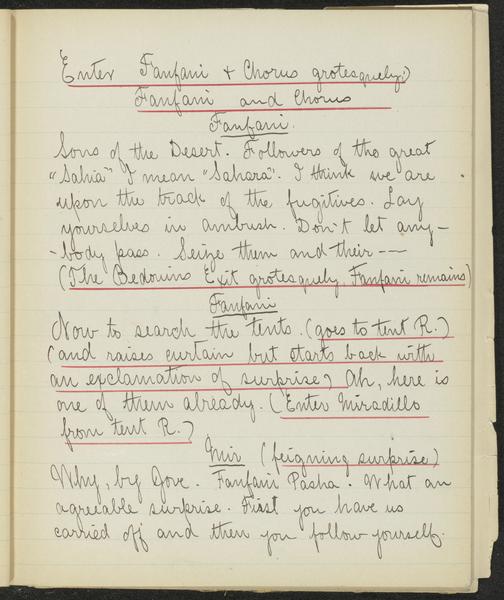 Enter Fanfani & Chorus grotesquely)
Fanfani and Chorus
Fanfani.
Sons of the Desert. Followers of the great
"Sahia" I mean "Sahara". I think we are
upon the track of the fugitives. Lay
yourselves in ambush. Don't let any-
-body pass. Seize them and their ---
(The Bedouins Exit grotesquely, Fanfani remains)
Fanfani
Now to search the tents. (goes to tent R.)
(and raises curtain but starts back with
an exclamation of surprise) Ah, here is
one of them already. (Enter Miradillo
from tent R.)
Mir (feigning surprise)
Why, by Jove. Fanfani Pasha. What an
agreeable surprise. First you have us
carried off and then you follow yourself.